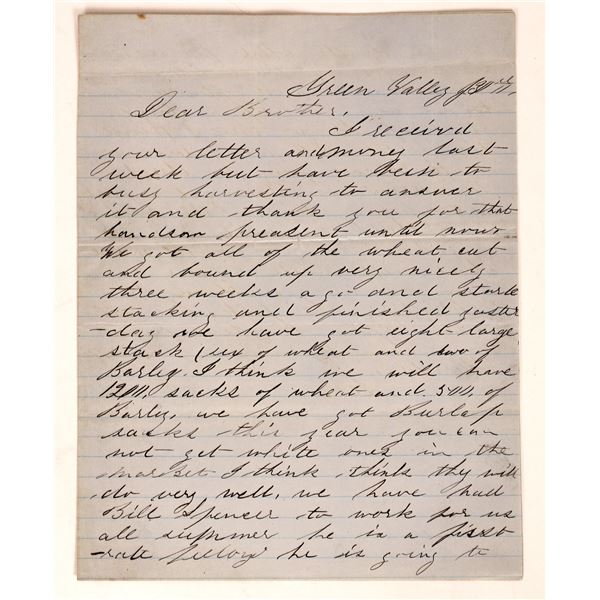 Green Valley
Dear Brother,
I receivd
your letter and money last
week but have been to
busy harvesting to answer
it and thank you for that
handsom preasent until now
We got all of the wheat cut
and bound up very nicely
three weeks ago and starte
stacking and finished yaster
-day we have got eight large
stack six of wheat and two of
Barley. I think we will have
1200, sacks of wheat and, 500, of
Barley, we have got Burlap
sacks this year you can
not get white ones in the
market I think think thy will
do very well, we have had
Bill Spencer to work for us
all summer he is a first
-rate fellow he is going to